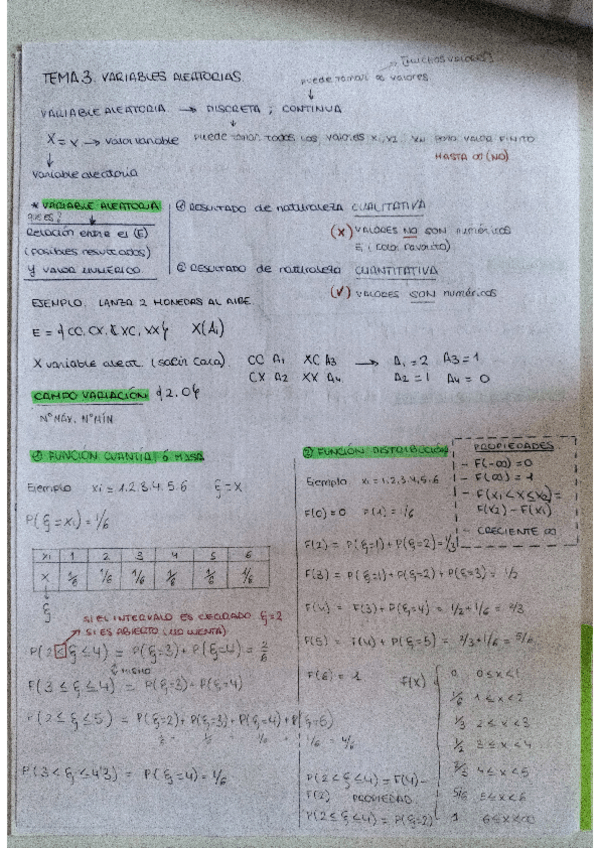 (MUCHOS VALORES)
TEMA 3. VARIABLES ALEATORIAS.
puede tomar ∞ valores
VARIABLE ALEATORIA → DISCRETA ; CONTINUA
X = x → valor variable
puede tomar todos los valores x1, x2
valor finito
HASTA ∞ (NO)
variable aleatoria
* VARIABLE ALEATORIA
qué es?
Relación entre el (E)
(posibles resultados)
y valor numérico
① RESULTADO de naturaleza CUALITATIVA
(X) VALORES NO SON numéricos
Ej (color favorito)
② RESULTADO de naturaleza CUANTITATIVA
(✓) VALORES SON numéricos
EJEMPLO. LANZA 2 MONEDAS AL AIRE.
E = { CC, CX, XC, XX } X(Ai)
X variable aleat. (salir cara) CC A1 XC A3 → A1 = 2 A3 = 1
CX A2 XX A4 A2 = 1 A4 = 0
CAMPO VARIACIÓN {2,0}
Nº MÁX. Nº MÍN
① FUNCIÓN CUANTÍA ó MASA
Ejemplo xi = 1,2,3,4,5,6 ξ = X
P(ξ = xi) = 1/6
xi 1 2 3 4 5 6
X 1/6 1/6 1/6 1/6 1/6 1/6
ξ
SI EL INTERVALO ES CERRADO ξ = 2
SI ES ABIERTO (NO CUENTA)
P(2 < ξ ≤ 4) = P(ξ = 3) + P(ξ = 4) = 2/6
F(3 ≤ ξ ≤ 4) = P(ξ = 3) + P(ξ = 4)
P(2 ≤ ξ ≤ 5) = P(ξ = 2) + P(ξ = 3) + P(ξ = 4) + P(ξ = 5)
= 4/6
P(3 < ξ ≤ 4'3) = P(ξ = 4) = 1/6
② FUNCIÓN DISTRIBUCIÓN
Ejemplo xi = 1,2,3,4,5,6
F(0) = 0 F(1) = 1/6
F(2) = P(ξ = 1) + P(ξ = 2) = 1/3
F(3) = P(ξ = 1) + P(ξ = 2) + P(ξ = 3) = 1/2
F(4) = F(3) + P(ξ = 4) = 1/2 + 1/6 = 2/3
F(5) = F(4) + P(ξ = 5) = 2/3 + 1/6 = 5/6
F(6) = 1
PROPIEDADES
- F(-∞) = 0
- F(∞) = 1
- F(x1 < X ≤ x2) =
F(x2) - F(x1)
- CRECIENTE ∞
F(X)
0 0 ≤ x < 1
1/6 1 ≤ x < 2
1/3 2 ≤ x < 3
1/2 3 ≤ x < 4
2/3 4 ≤ x < 5
5/6 5 ≤ x < 6
1 6 ≤ x < ∞
P(2 < ξ ≤ 4) = F(4) -
F(2) PROPIEDAD
P(2 ≤ ξ ≤ 4) = P(ξ = 2)